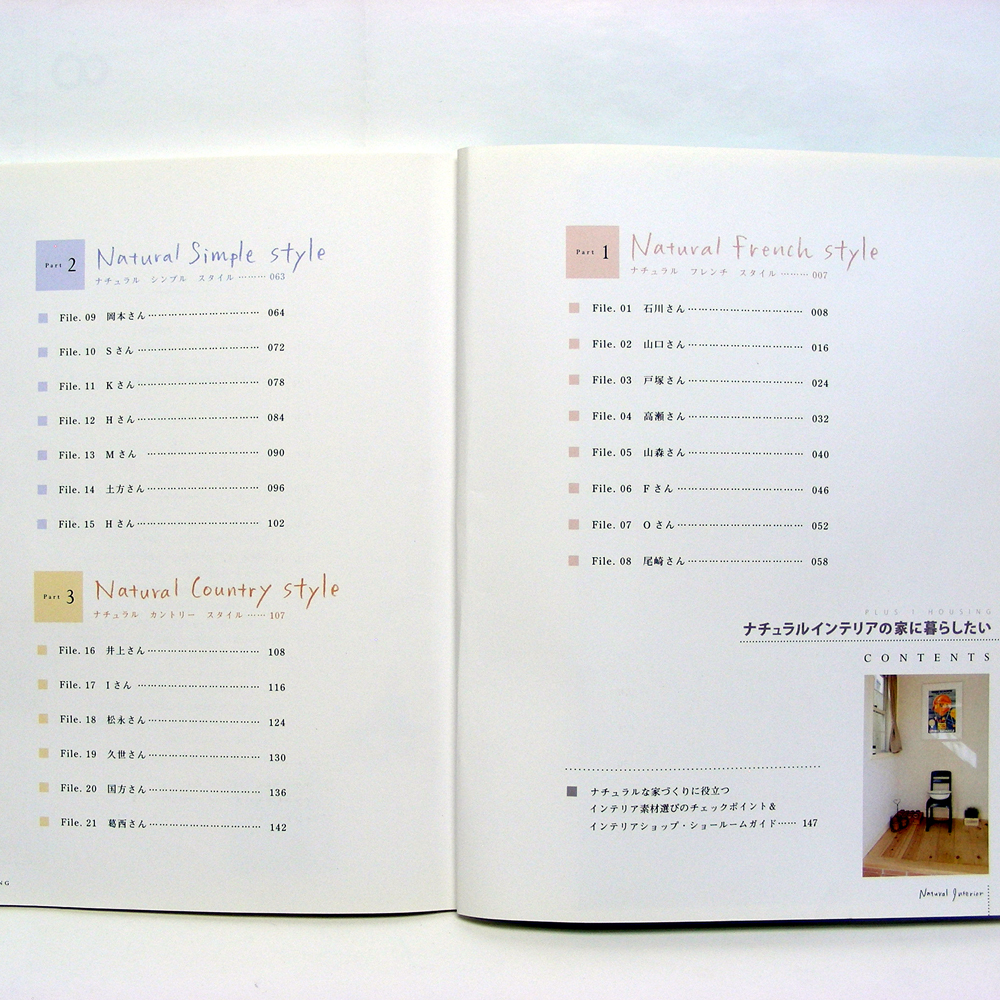 Part 1 Natural French style
ナチュラル フレンチ スタイル ……… 007
File. 01 石川さん ………………………… 008
File. 02 山口さん ………………………… 016
File. 03 戸塚さん ………………………… 024
File. 04 高瀬さん ………………………… 032
File. 05 山森さん ………………………… 040
File. 06 Fさん ………………………… 046
File. 07 Oさん ………………………… 052
File. 08 尾崎さん ………………………… 058
PLUS 1 HOUSING
ナチュラルインテリアの家に暮らしたい
CONTENTS
ナチュラルな家づくりに役立つ
インテリア素材選びのチェックポイント&
インテリアショップ・ショールームガイド …… 147
Natural Interior
Part 2 Natural Simple style
ナチュラル シンプル スタイル ……… 063
File. 09 岡本さん ………………………… 064
File. 10 Sさん ………………………… 072
File. 11 Kさん ………………………… 078
File. 12 Hさん ………………………… 084
File. 13 Mさん ………………………… 090
File. 14 土方さん ………………………… 096
File. 15 Hさん ………………………… 102
Part 3 Natural Country style
ナチュラル カントリー スタイル …… 107
File. 16 井上さん ………………………… 108
File. 17 Iさん ………………………… 116
File. 18 松永さん ………………………… 124
File. 19 久世さん ………………………… 130
File. 20 国方さん ………………………… 136
File. 21 葛西さん ………………………… 142